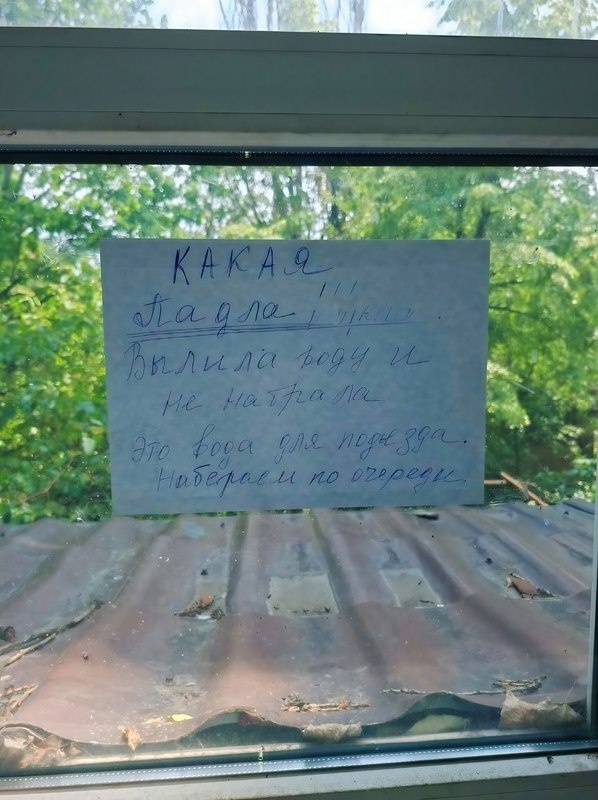 КАКАЯ
Падла !!!
Вылила воду и
не набрала
Это вода для подъезда.
Набераем по очереди